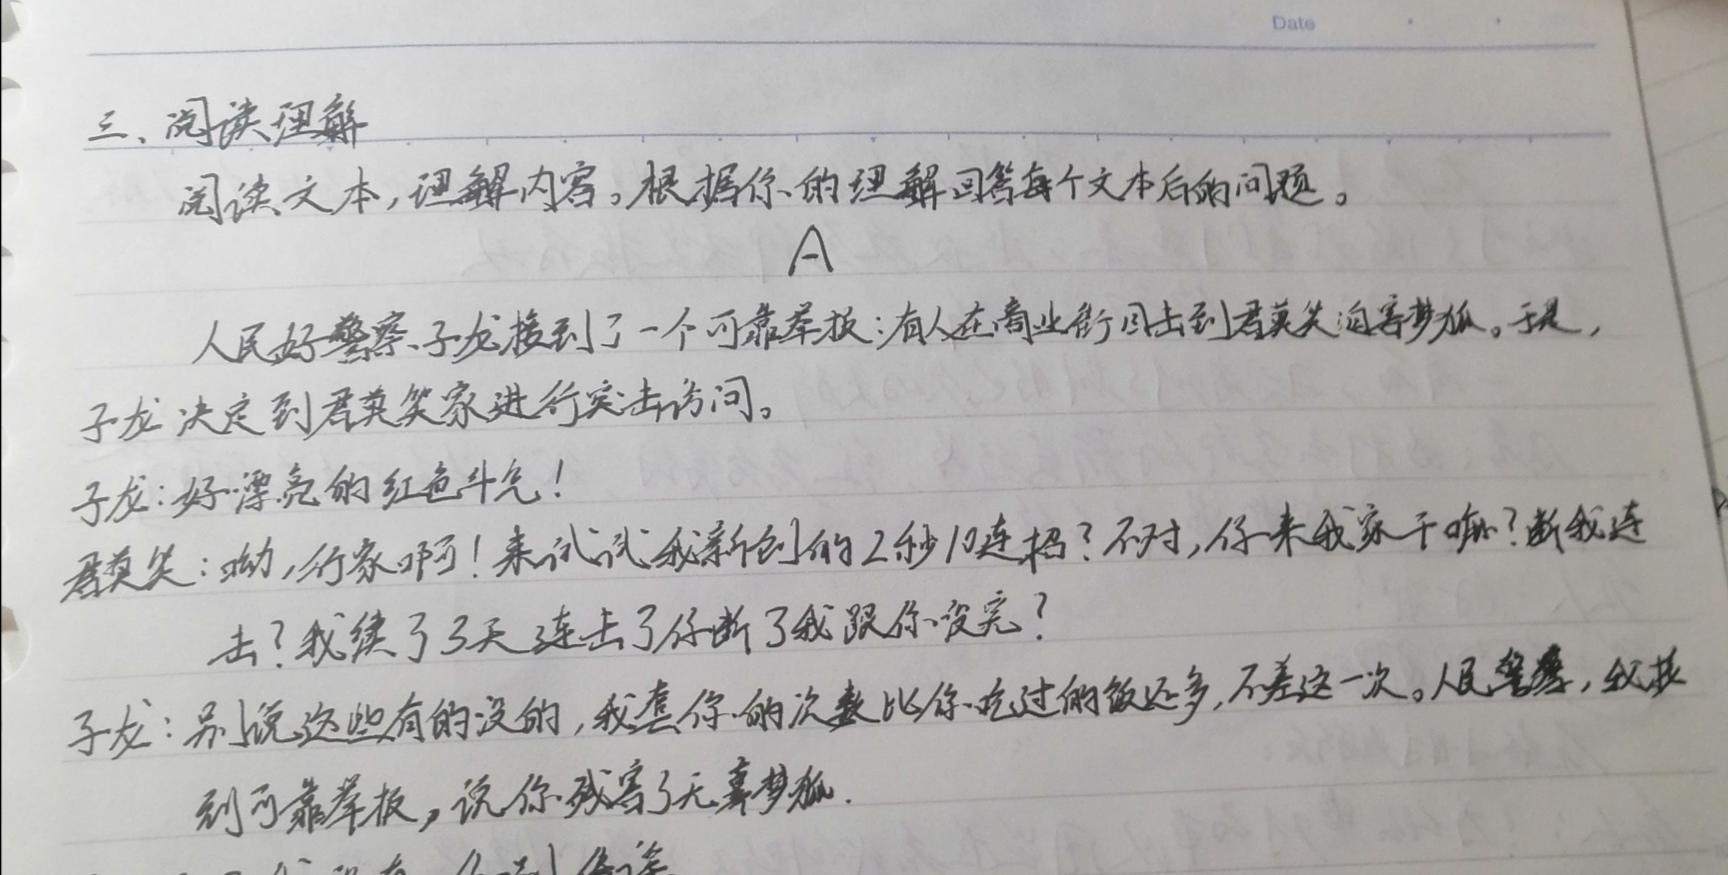 Date
三、阅读理解
阅读文本,理解内容。根据你的理解回答每个文本后的问题。
A
人民好警察子龙接到了一个可靠举报:有人在商业街目击到君莫笑迫害梦狐。于是,
子龙决定到君莫笑家进行突击访问。
子龙:好漂亮的红色斗气!
君莫笑:呦,行家啊!来试试我新创的2秒10连招?不对,你来我家干嘛?断我连
击?我续了3天连击了你断了我跟你没完?
子龙:别说这些有的没的,我真你的次数比你吃过的饭还多,不差这一次。人民警察,我接
到可靠举报,说你残害了无辜梦狐.